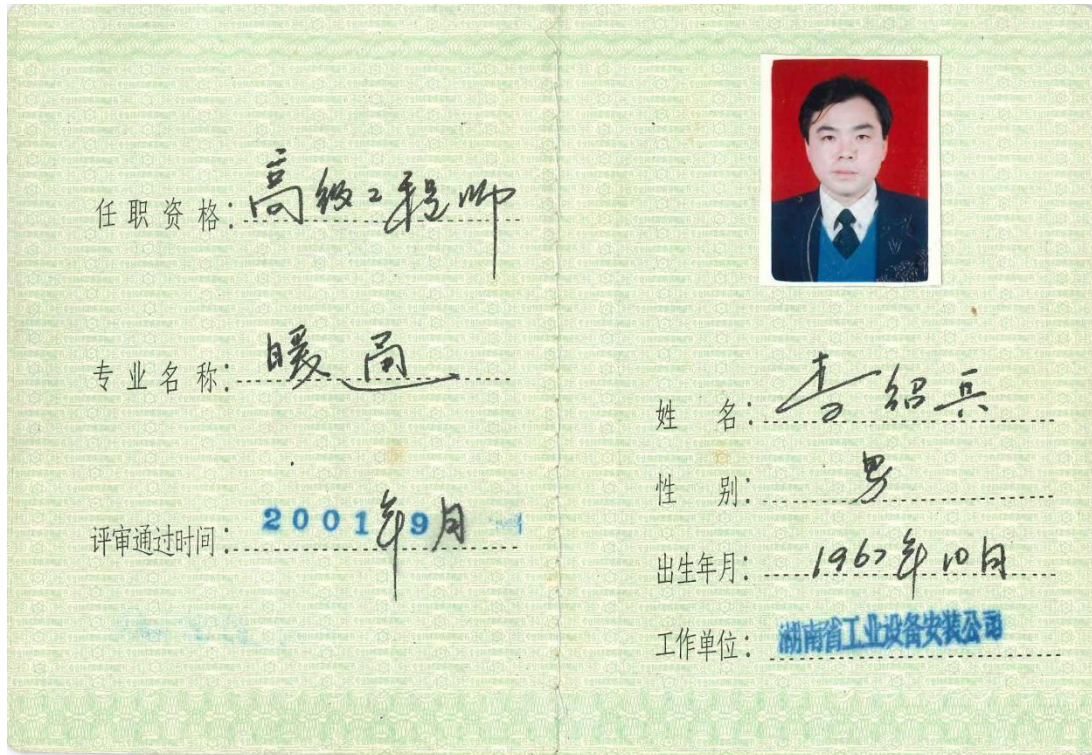 任职资格：高级工程师
专业名称：暖通
评审通过时间：2001年9月
姓名：李绍兵
性别：男
出生年月：1967年10月
工作单位：湖南省工业设备安装公司